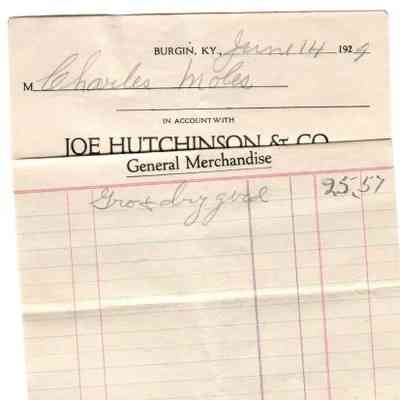 BURGIN, KY., June 14 1929
M Charles Moles
IN ACCOUNT WITH
JOE HUTCHINSON & CO.
General Merchandise
Gro & dry good 25.57